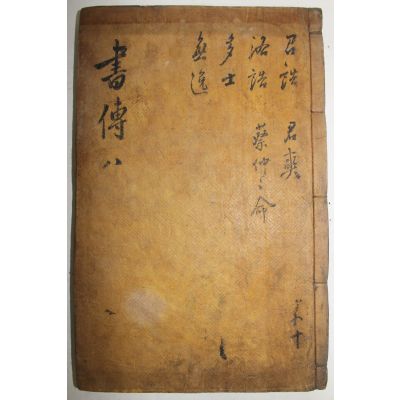 共十
召誥 君奭
洛誥 蔡仲之命
多士
無逸
書傳 八